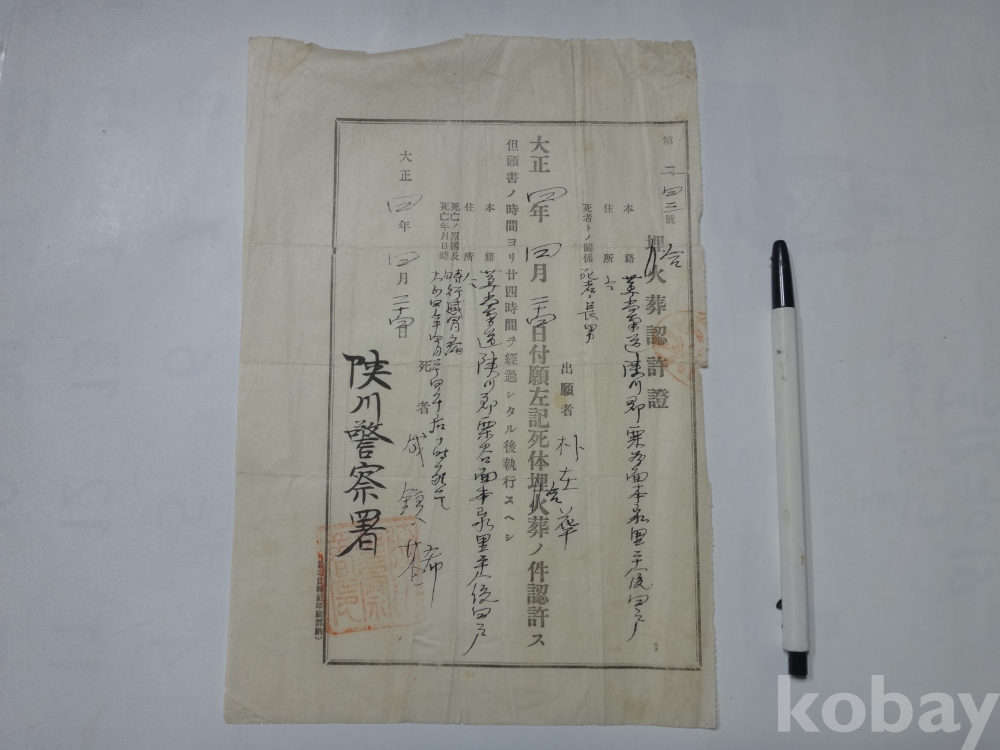 第二四二號
埋火葬認許證
本籍 慶尚南道陜川郡栗谷面本泉里 統四戶
住所 仝
死者トノ關係 死者ノ長男
出願者 朴在華
大正四年四月二十四日付願左記死体埋火葬ノ件認許ス
但頭書ノ時間ヨリ廿四時間ヲ經過シタル後執行スヘシ
本籍 慶尚南道陜川郡栗谷面本泉里 統四戶
住所 仝
死亡ノ原因及死亡年月日時 時行感冒
大正四年四月 午后 時死亡
死者 成
大正四年四月二十四日
陜川警察署
kobay